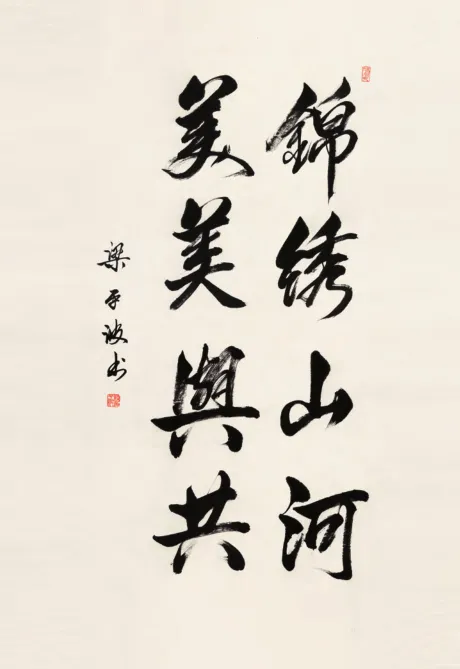 錦绣山河
美美與共
梁平波书